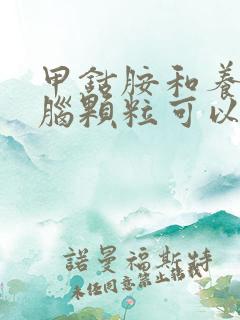 甲鈷胺和養
腦顆粒可以
諾曼福斯特
未經同意禁止轉載